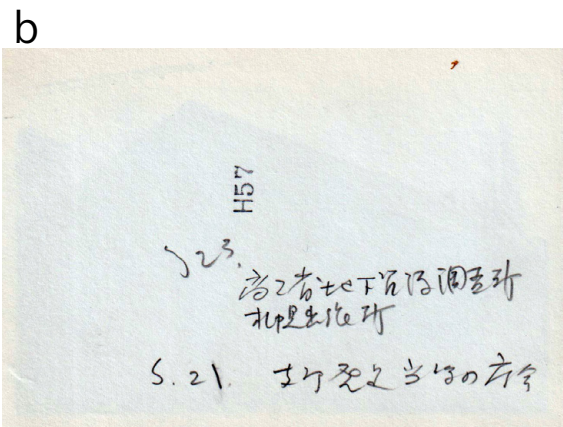 b
H57
S23.
商工省地下資源調査所
札幌出張所
S.21. 支所発足当時の庁舎